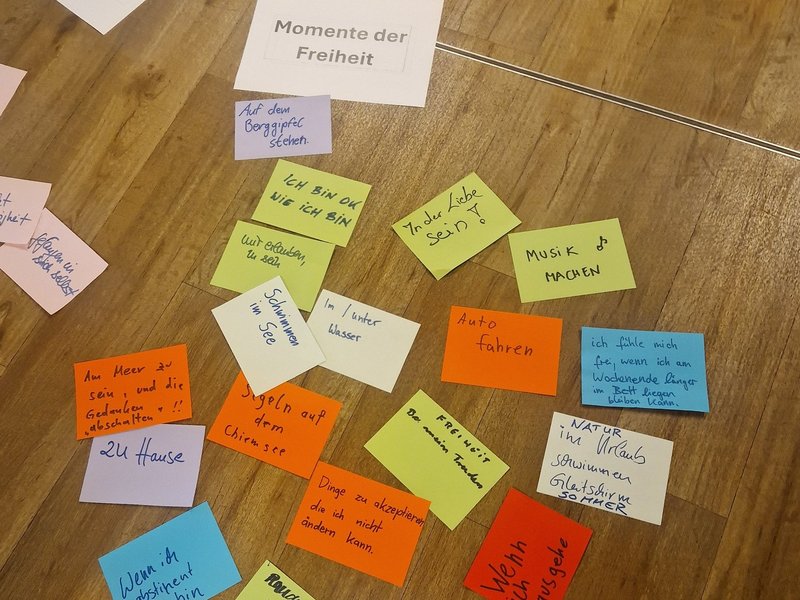 Momente der
Freiheit
Auf dem
Berggipfel
stehen.
ICH BIN OK
WIE ICH BIN
mir erlauben,
zu sein
In der Liebe
sein!
MUSIK ♪
MACHEN
Schwimmen
im See
Im / unter
Wasser
Auto
fahren
ich fühle mich
frei, wenn ich am
Wochenende länger
im Bett liegen
bleiben kann.
Am Meer zu
sein, und die
Gedanken
"abschalten" !!
Segeln auf
dem
Chiemsee
FREIHEIT
Bei meinen Freunden
NATUR
im Urlaub
schwimmen
Gleitschirm
SOMMER
Zu Hause
Dinge zu akzeptieren
die ich nicht
ändern kann.
Wenn ich
abstinent
bin
Wenn
ich
ausgehe
gefangen in
sich selbst